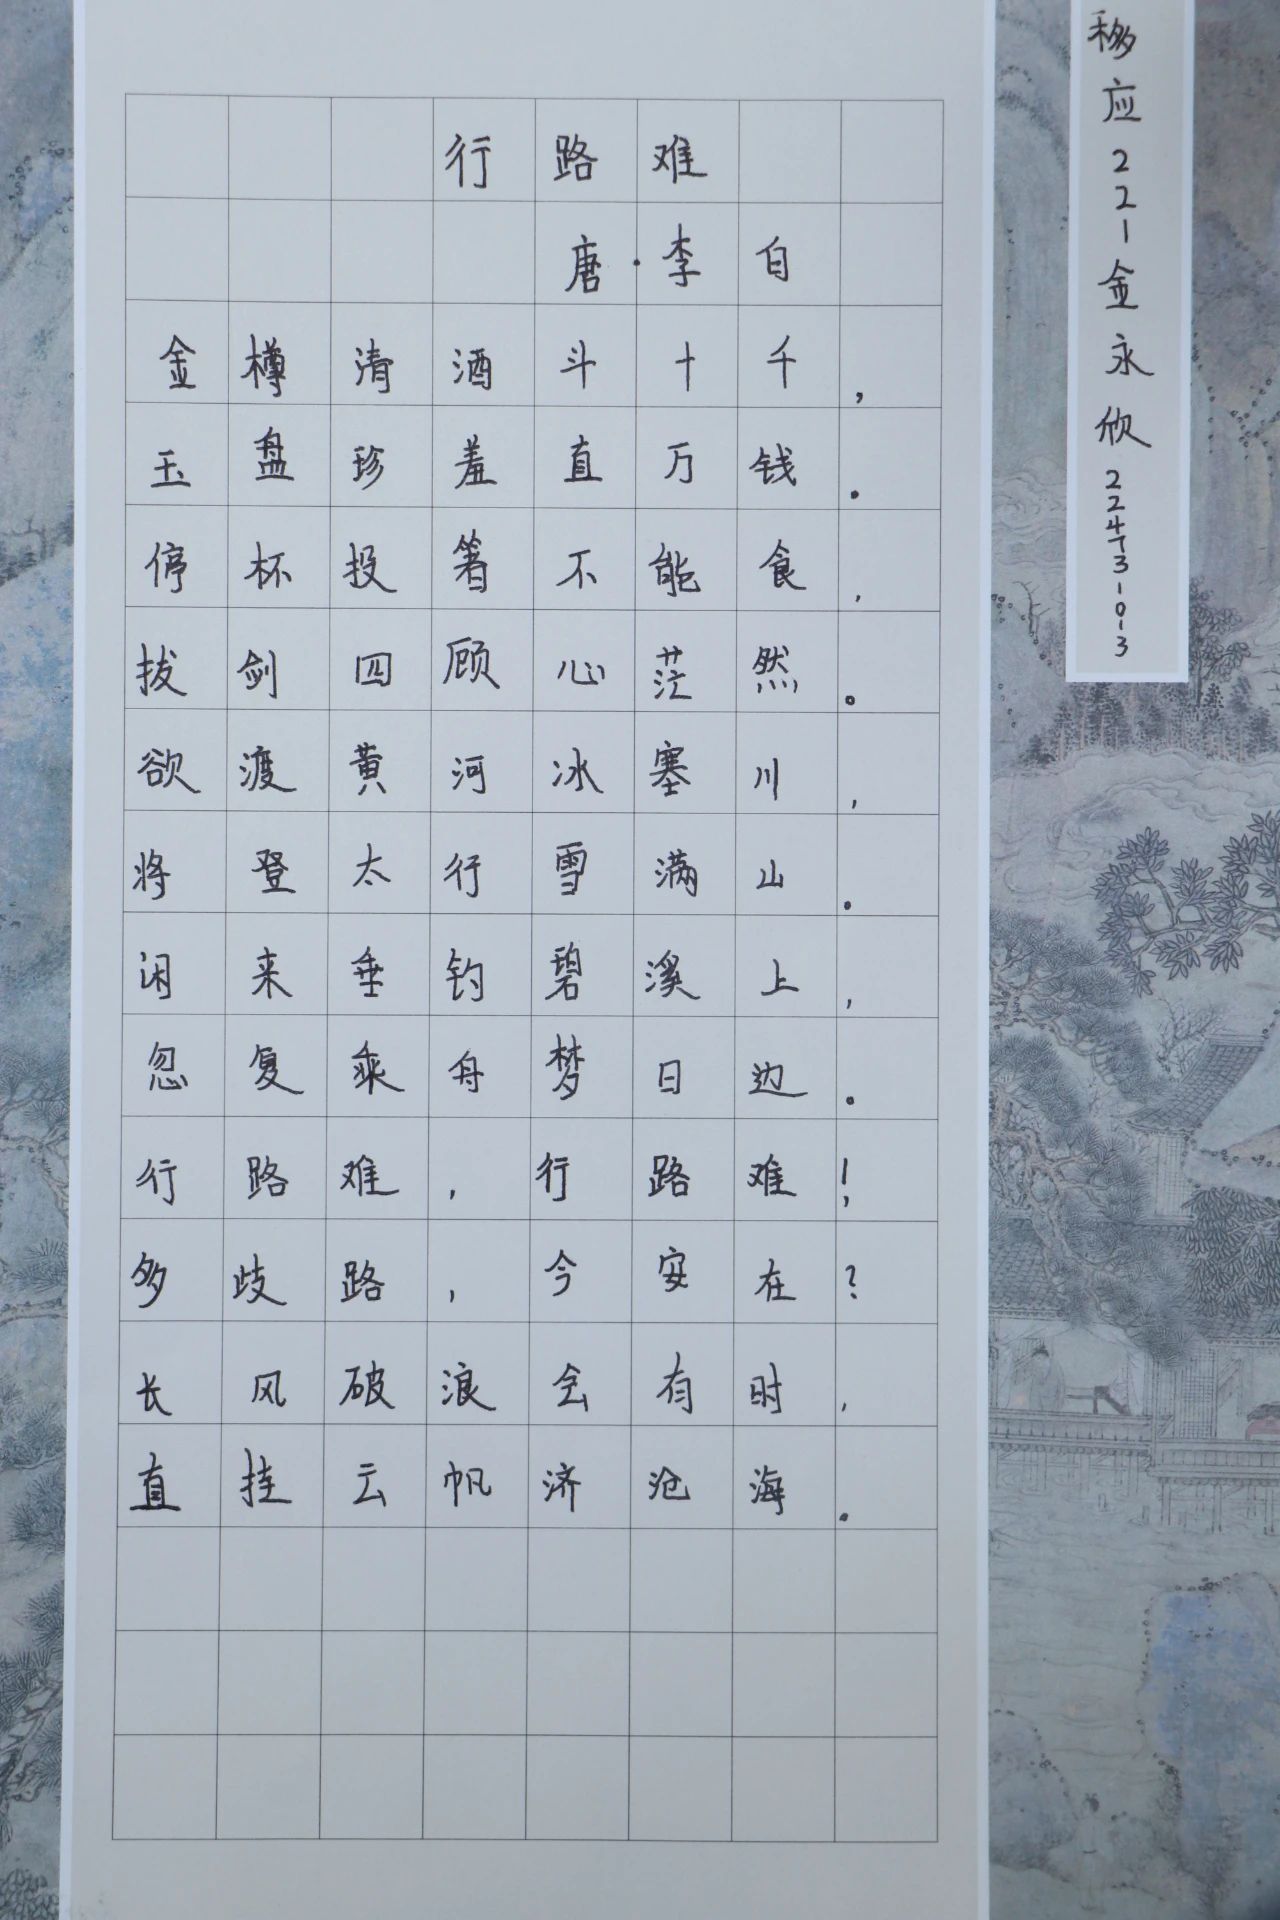 行路难
唐·李白
金樽清酒斗十千，
玉盘珍羞直万钱。
停杯投箸不能食，
拔剑四顾心茫然。
欲渡黄河冰塞川，
将登太行雪满山。
闲来垂钓碧溪上，
忽复乘舟梦日边。
行路难，行路难！
多歧路，今安在？
长风破浪会有时，
直挂云帆济沧海。
移应221金永欣22473-0-3